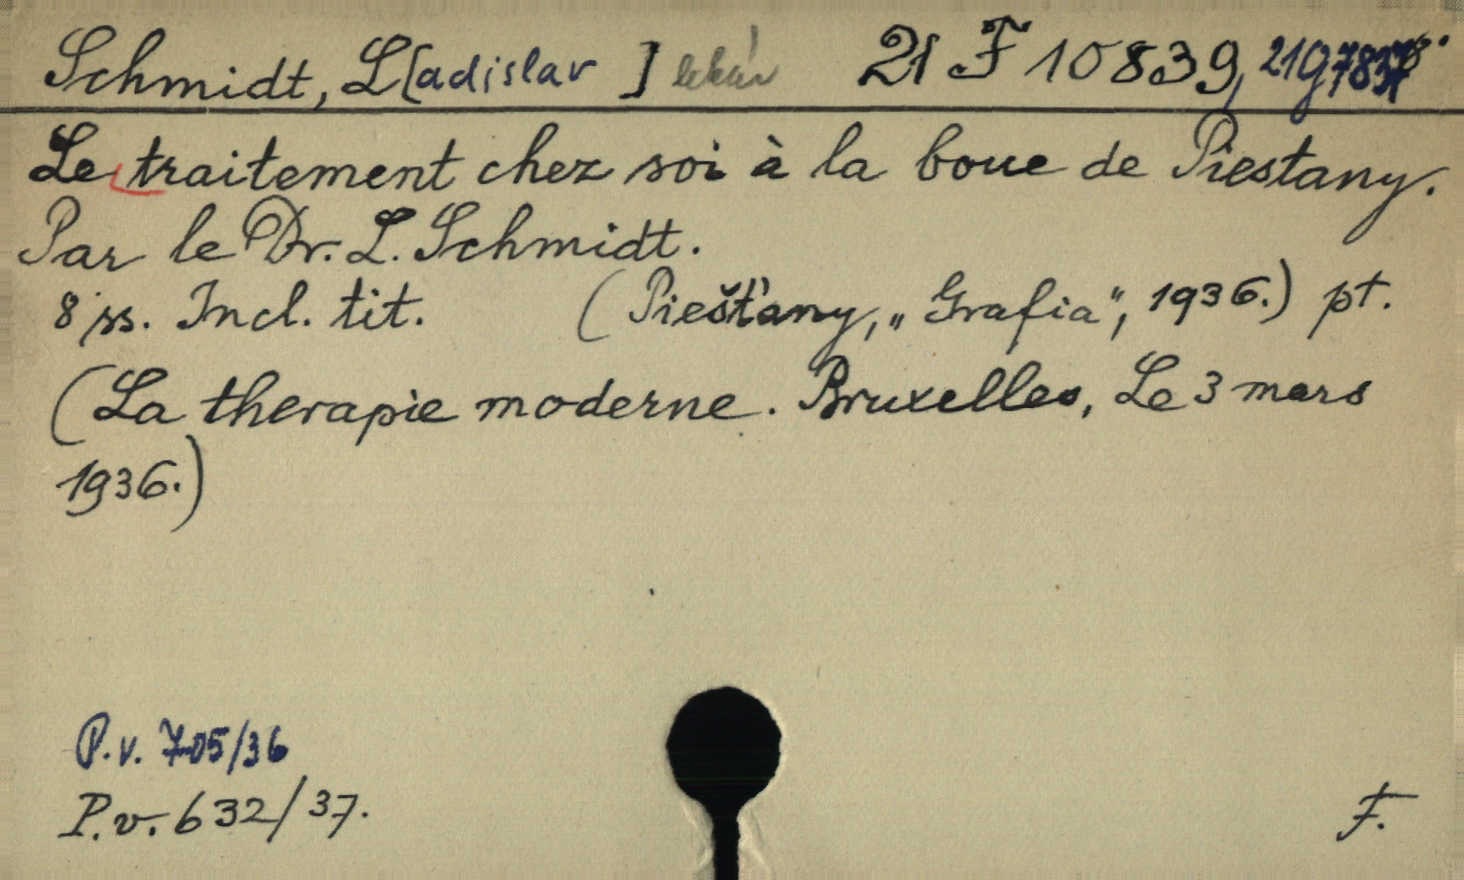 Schmidt, L[adislav] lekár 21 F 10839,
Le traitement chez soi à la boue de Piestany.
Par le Dr. L. Schmidt.
8 ss. Incl. tit. (Piešťany, „Grafia", 1936.) pt.
(La therapie moderne. Bruxelles, Le 3 mars
1936.)
P.v. 705/36
P.v. 632/37.
F.